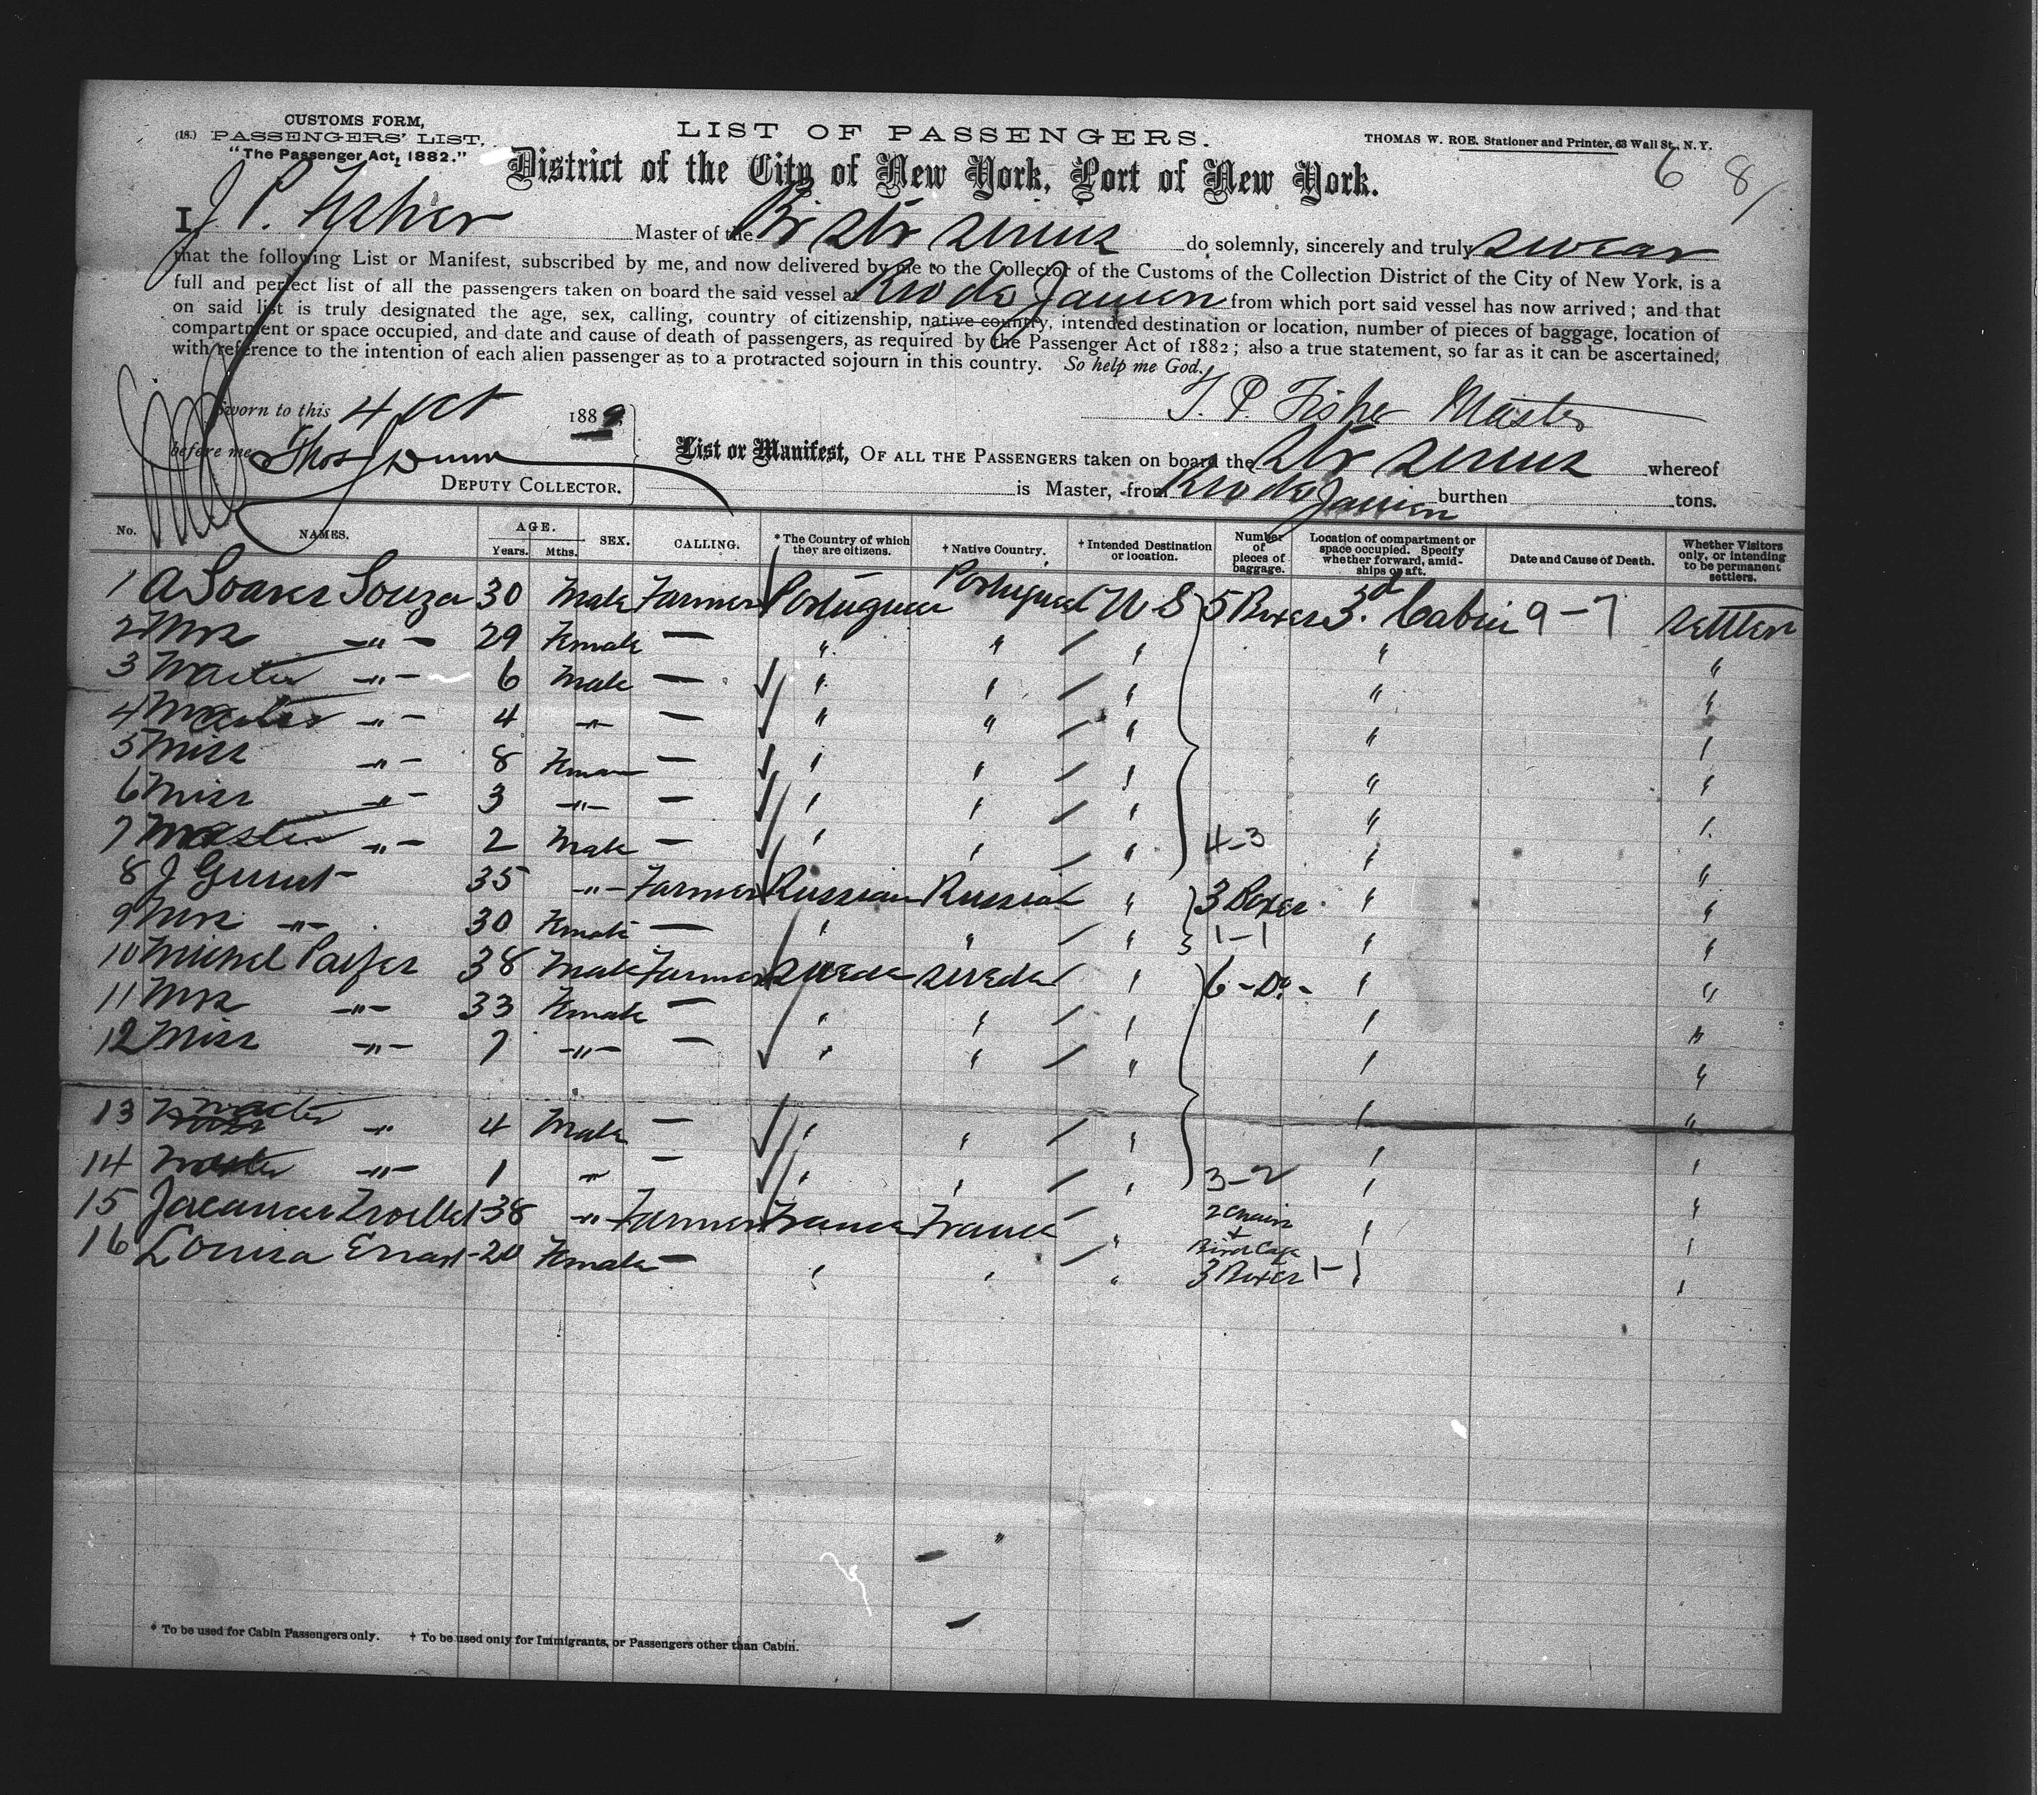 CUSTOMS FORM,
(18.) PASSENGERS' LIST.
"The Passenger Act, 1882."
LIST OF PASSENGERS.
THOMAS W. ROE, Stationer and Printer, 63 Wall St., N. Y.
District of the City of New York, Port of New York.
6 8/
I, J P. Fisher Master of the Br Str Sirius do solemnly, sincerely and truly swear
that the following List or Manifest, subscribed by me, and now delivered by me to the Collector of the Customs of the Collection District of the City of New York, is a
full and perfect list of all the passengers taken on board the said vessel at Rio de Janeiro from which port said vessel has now arrived; and that
on said list is truly designated the age, sex, calling, country of citizenship, native country, intended destination or location, number of pieces of baggage, location of
compartment or space occupied, and date and cause of death of passengers, as required by the Passenger Act of 1882; also a true statement, so far as it can be ascertained,
with reference to the intention of each alien passenger as to a protracted sojourn in this country. So help me God.
Sworn to this 4 Oct 1889
J. P. Fisher Master
before me Thos J Dunn
DEPUTY COLLECTOR.
List or Manifest, OF ALL THE PASSENGERS taken on board the Str Sirius whereof
is Master, from Rio de Janeiro burthen tons.
No. NAMES. AGE. Years. Mths. SEX. CALLING. * The Country of which they are citizens. † Native Country. † Intended Destination or location. Number of pieces of baggage. Location of compartment or space occupied. Specify whether forward, amidships or aft. Date and Cause of Death. Whether Visitors only, or intending to be permanent settlers.
1 A Soares Souza 30 Male Farmer Portuguese Portuguese U S 5 Boxes 3d Cabin 9-7 Settlers
2 Mrs -"- 29 Female — " " " " "
3 Master -"- 6 Male — " " " " "
4 Master -"- 4 -"- — " " " " "
5 Miss -"- 8 Female — " " " " "
6 Miss -"- 3 -"- — " " " " "
7 Master -"- 2 Male — " " " 4-3 " "
8 J 35 -"- Farmer Russian Russian " 3 Boxes " "
9 Mrs -"- 30 Female — " " " 1-1 " "
10 Michel 38 Male Farmer Swede Swede " 6 - Do - " "
11 Mrs -"- 33 Female — " " " " "
12 Miss -"- 7 -"- — " " " " "
13 Master " 4 Male — " " " " "
14 Master -"- 1 " — " " " 3-2 " "
15 38 -"- Farmer France France 2 Chairs + Bird Cage " "
16 Louisa 20 Female — " " " 3 Boxes 1-1 "
* To be used for Cabin Passengers only. † To be used only for Immigrants, or Passengers other than Cabin.